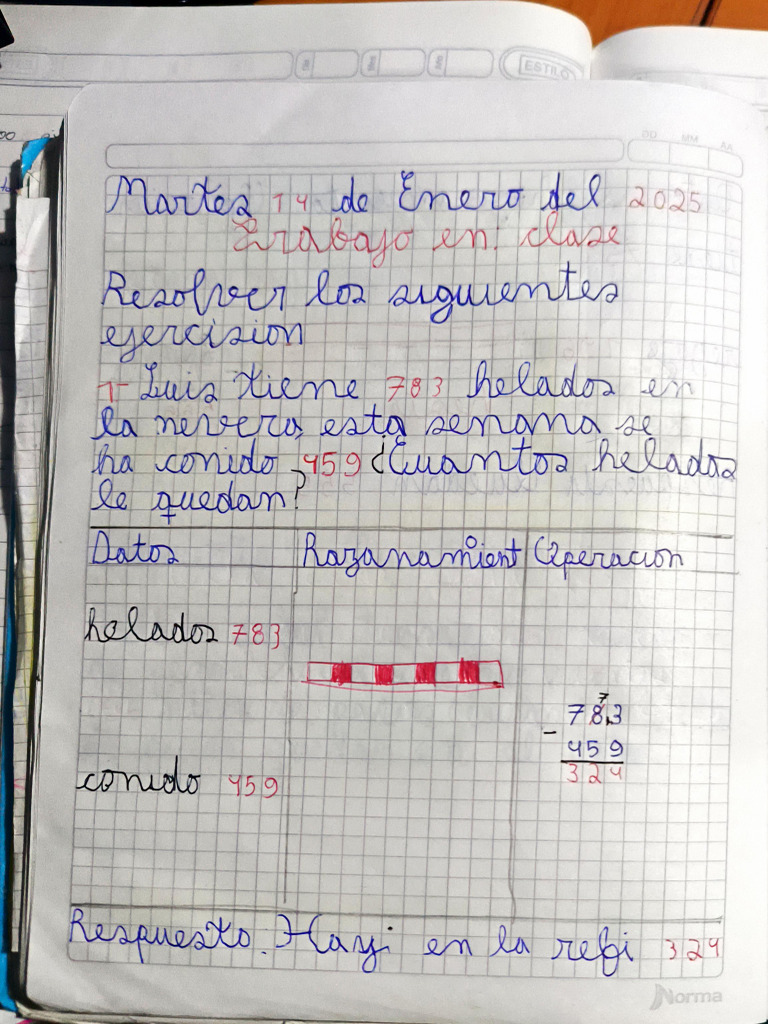 ESTILO
DD MM AA
Martes 14 de Enero del 2025
Trabajo en clase
Resolver los siguientes
ejercision
1- Luis tiene 783 helados en
la nevera, esta semana se
ha conido 459 ¿Cuantos helados
le quedan?
Datos Razanamient Operacion
helados 783
7
783
- 459
324
conido 459
Respuesta: Hay en la refi 324
Norma